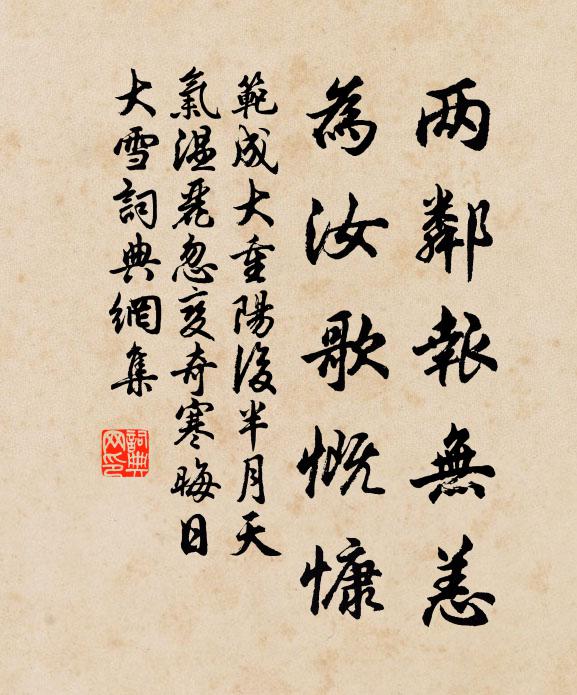 两鄰報無恙
為汝歌慨慷
範成大重陽後半月天
氣温麗忽变奇寒晦日
大雪詞典網集
詞典
网印